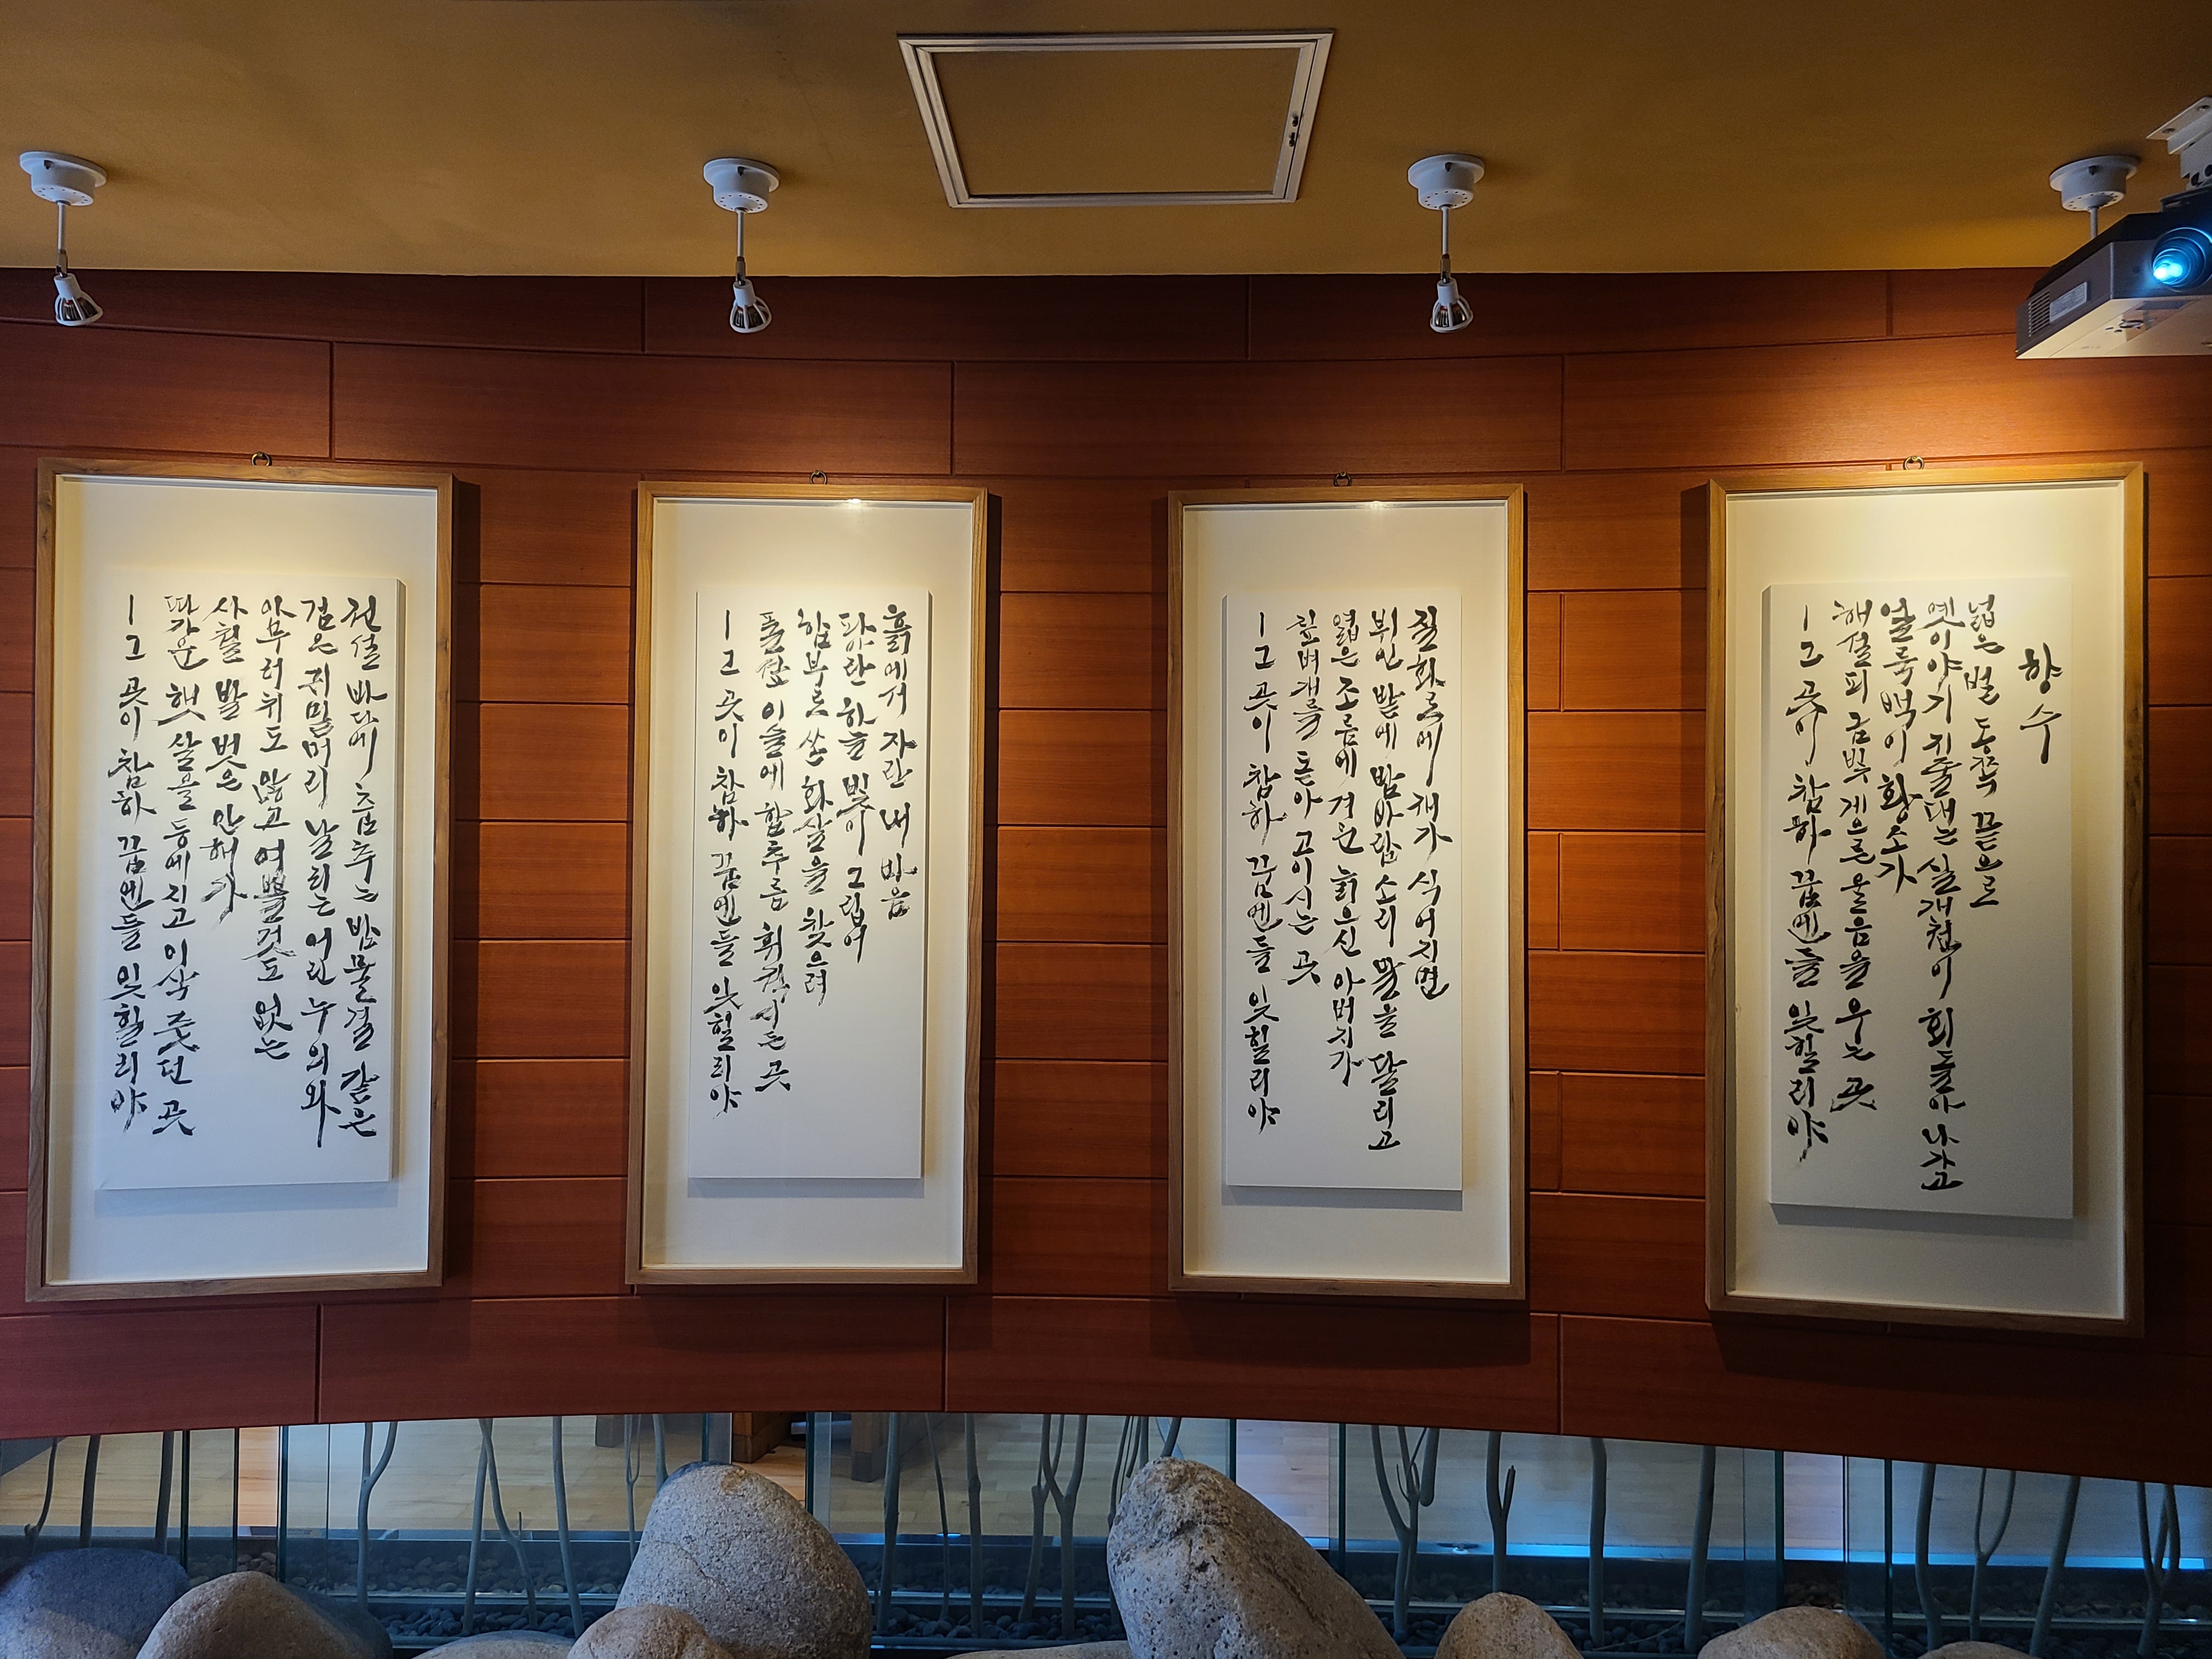 향수
넓은 벌 동쪽 끝으로
옛이야기 지줄대는 실개천이 회돌아 나가고
얼룩백이 황소가
해설피 금빛 게으른 울음을 우는 곳
ㅣ그 곳이 참하 꿈엔들 잊힐리야
질화로에 재가 식어지면
뷔인 밭에 밤바람 소리 말을 달리고
엷은 조름에 겨운 늙으신 아버지가
짚벼개를 돋아 고이시는 곳
ㅣ그 곳이 참하 꿈엔들 잊힐리야
흙에서 자란 내 마음
파아란 하늘 빛이 그립어
함부로 쏜 화살을 찾으려
풀섶 이슬에 함추름 휘적시든 곳
ㅣ그 곳이 참하 꿈엔들 잊힐리야
전설바다에 춤추는 밤물결 같은
검은 귀밑머리 날리는 어린 누의와
아무러치도 않고 여쁠것도 없는
사철 발 벗은 안해가
따가운 햇살을 등에지고 이삭 줏던 곳
ㅣ그 곳이 참하 꿈엔들 잊힐리야